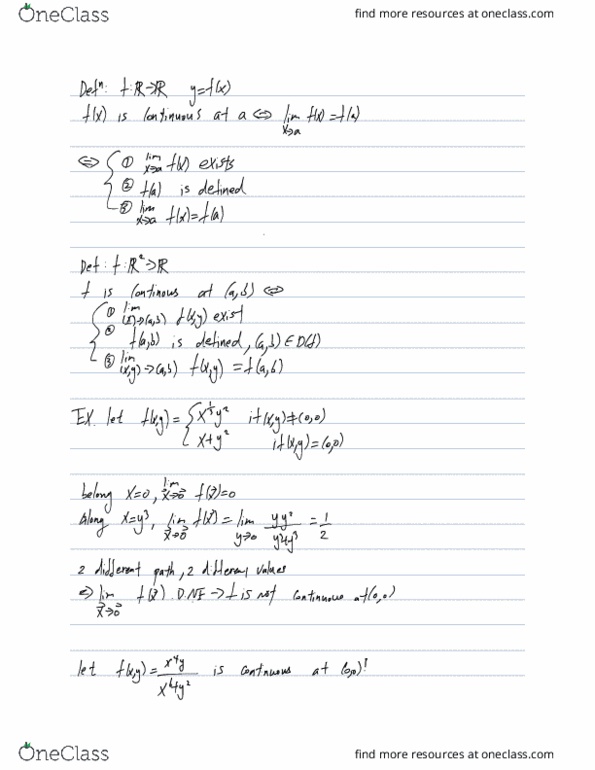 OneClass
find more resources at oneclass.com
Defⁿ: f:ℝ→ℝ y=f(x)
f(x) is continuous at a ⇔ lim x→a f(x)=f(a)
⇔ { ① lim x→a f(x) exists
② f(a) is defined
③ lim x→a f(x)=f(a)
Def: f:ℝ²→ℝ
f is continous at (a,b) ⇔
{ ① lim (x,y)→(a,b) f(x,y) exist
② f(a,b) is defined, (a,b)∈D(f)
③ lim (x,y)→(a,b) f(x,y) = f(a,b)
EX. let f(x,y) = { x^(1/3)y² if (x,y)≠(0,0)
x+y² if (x,y)=(0,0)
belong x=0, lim x⃗→0⃗ f(x⃗)=0
along x=y³, lim x⃗→0⃗ f(x⃗) = lim y→0 yy²/y³+y³ = 1/2
2 different path, 2 different values
⇒ lim x⃗→0⃗ f(x⃗) DNE → f is not continuous at (0,0)
let f(x,y) = x⁴y/x⁴+y² is continuous at (0,0)?
OneClass
find more resources at oneclass.com